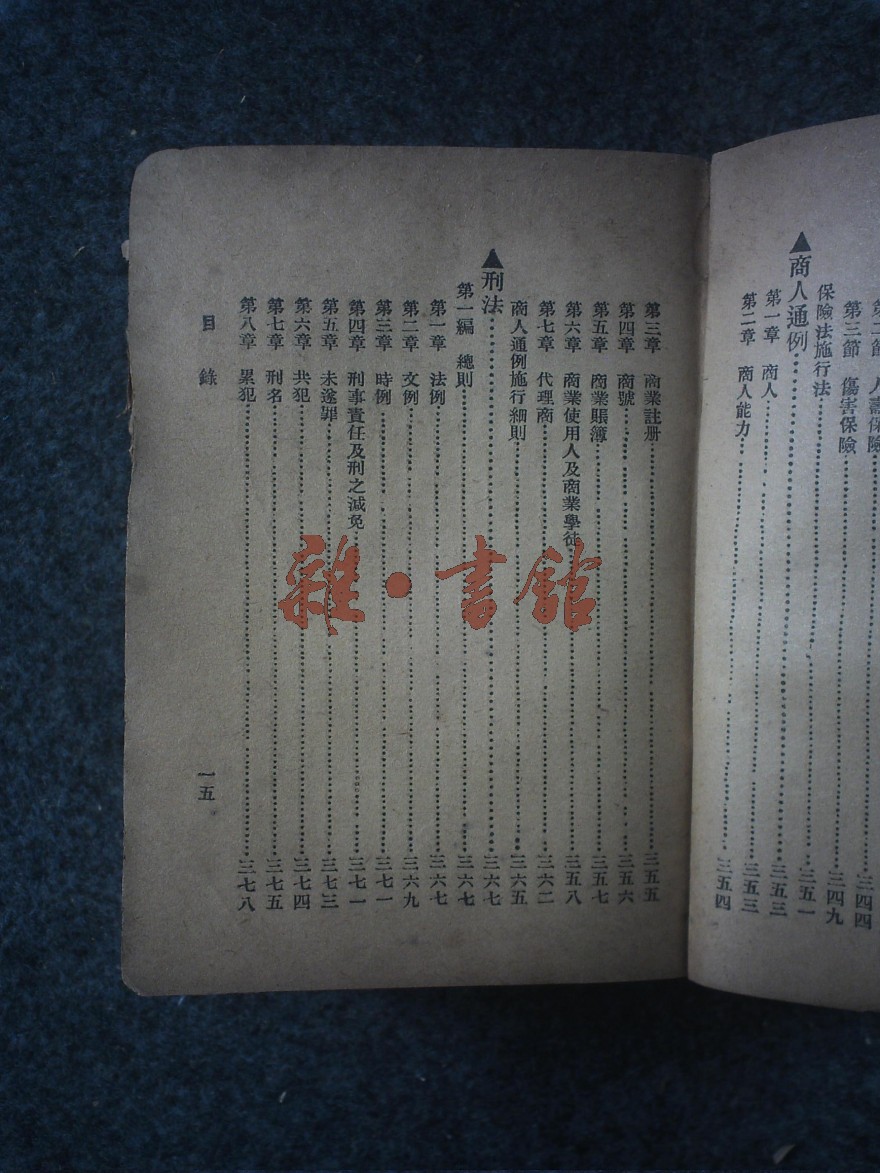 第二節 人壽保險……三四四
第三節 傷害保險……三四九
保險法施行法……三五一
▲商人通例……三五三
第一章 商人……三五三
第二章 商人能力……三五四
第三章 商業註册……三五五
第四章 商號……三五六
第五章 商業賬簿……三五七
第六章 商業使用人及商業學徒……三五八
第七章 代理商……三六二
商人通例施行細則……三六五
▲刑法……三六七
第一編 總則……三六七
第一章 法例……三六七
第二章 文例……三六九
第三章 時例……三七一
第四章 刑事責任及刑之減免……三七一
第五章 未遂罪……三七三
第六章 共犯……三七四
第七章 刑名……三七五
第八章 累犯……三七八
目錄
一五
雜·書館